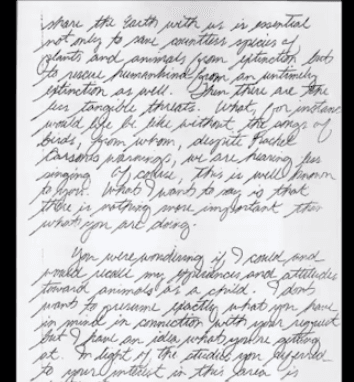 share the Earth with us is essential
not only to save countless species of
plants and animals from extinction but
to rescue humankind from an untimely
extinction as well. Then there are the
less tangible threats. What, for instance
would life be like without the songs of
birds, from whom, despite Rachel
Carson's warnings, we are hearing less
singing. Of course, this is well known
to you. What I want to say is that
there is nothing more important than
what you are doing.
You were wondering if I could and
would recall my experiences and attitudes
toward animals as a child. I don't
want to presume exactly what you have
in mind in connection with your request
but I have an idea what you're getting
at. In light of the studies you referred
to your interest in this area is